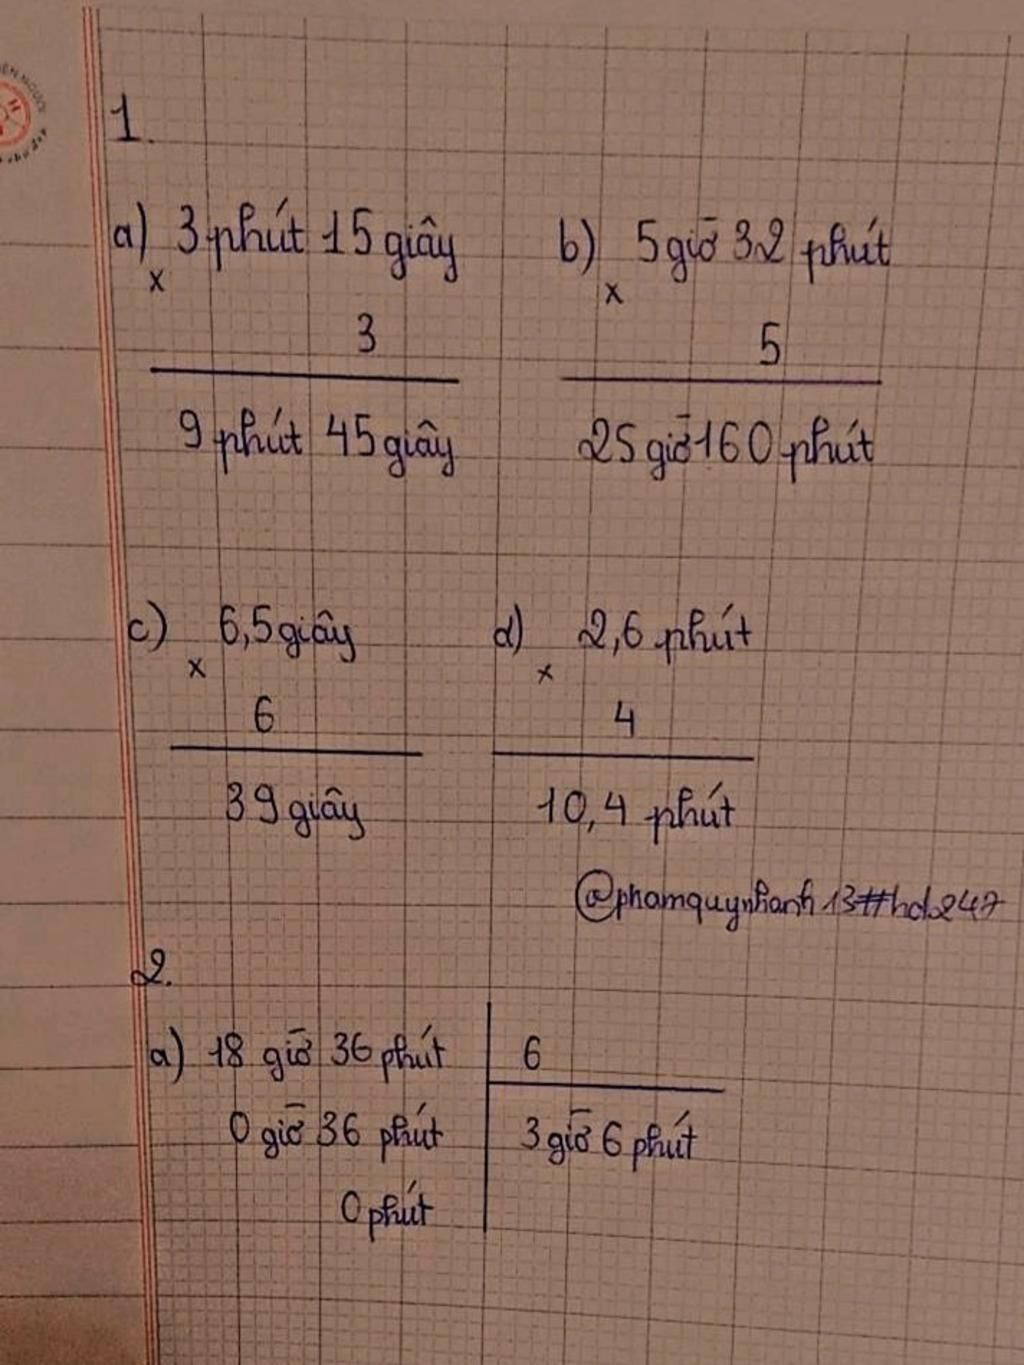 1.
a) 3 phút 15 giây b) 5 giờ 32 phút
x x
3 5
9 phút 45 giây 25 giờ 160 phút
c) 6,5 giây d) 2,6 phút
x x
6 4
39 giây 10,4 phút
@phamquynhanh13#hd247
2.
a) 18 giờ 36 phút 6
0 giờ 36 phút 3 giờ 6 phút
0 phút